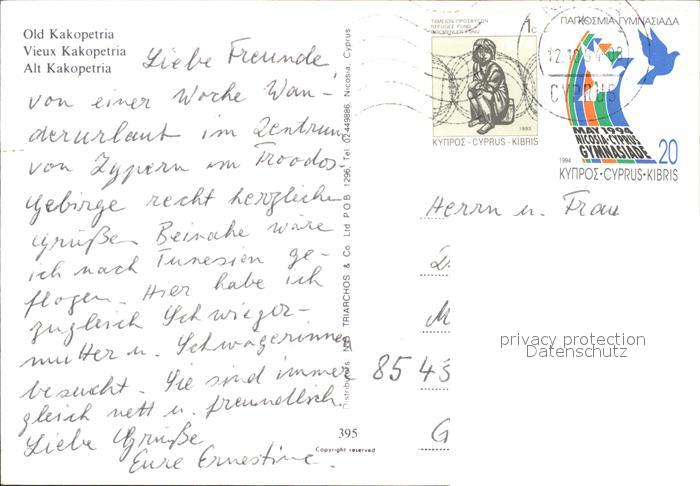 Old Kakopetria
Vieux Kakopetria
Alt Kakopetria
Liebe Freunde,
von einer Woche Wan-
derurlaub im Zentrum
von Zypern im Troodos-
gebirge recht herzliche
Grüße. Beinahe wäre
ich nach Tunesien ge-
flogen. Hier habe ich
zugleich Schwieger-
mutter u. Schwägerinnen
besucht. Sie sind immer
gleich nett u. freundlich.
Liebe Grüße
Eure Ernestine.
Distributors TRIARCHOS & Co. Ltd P O B 1296, Tel. 02-449886, Nicosia, Cyprus
395
Copyright reserved
ΤΑΜΕΙΟΝ ΠΡΟΣΦΥΓΩΝ
REFUGEE FUND
GÖÇMENLER FONU
1c
1993
ΚΥΠΡΟΣ - CYPRUS - KIBRIS
ΠΑΓΚΟΣΜΙΑ ΓΥΜΝΑΣΙΑΔΑ
CYPRUS
MAY 1994
NICOSIA-CYPRUS
GYMNASIADE
20
1994
ΚΥΠΡΟΣ·CYPRUS·KIBRIS
Herrn u. Frau
M
85 45
G
privacy protection
Datenschutz